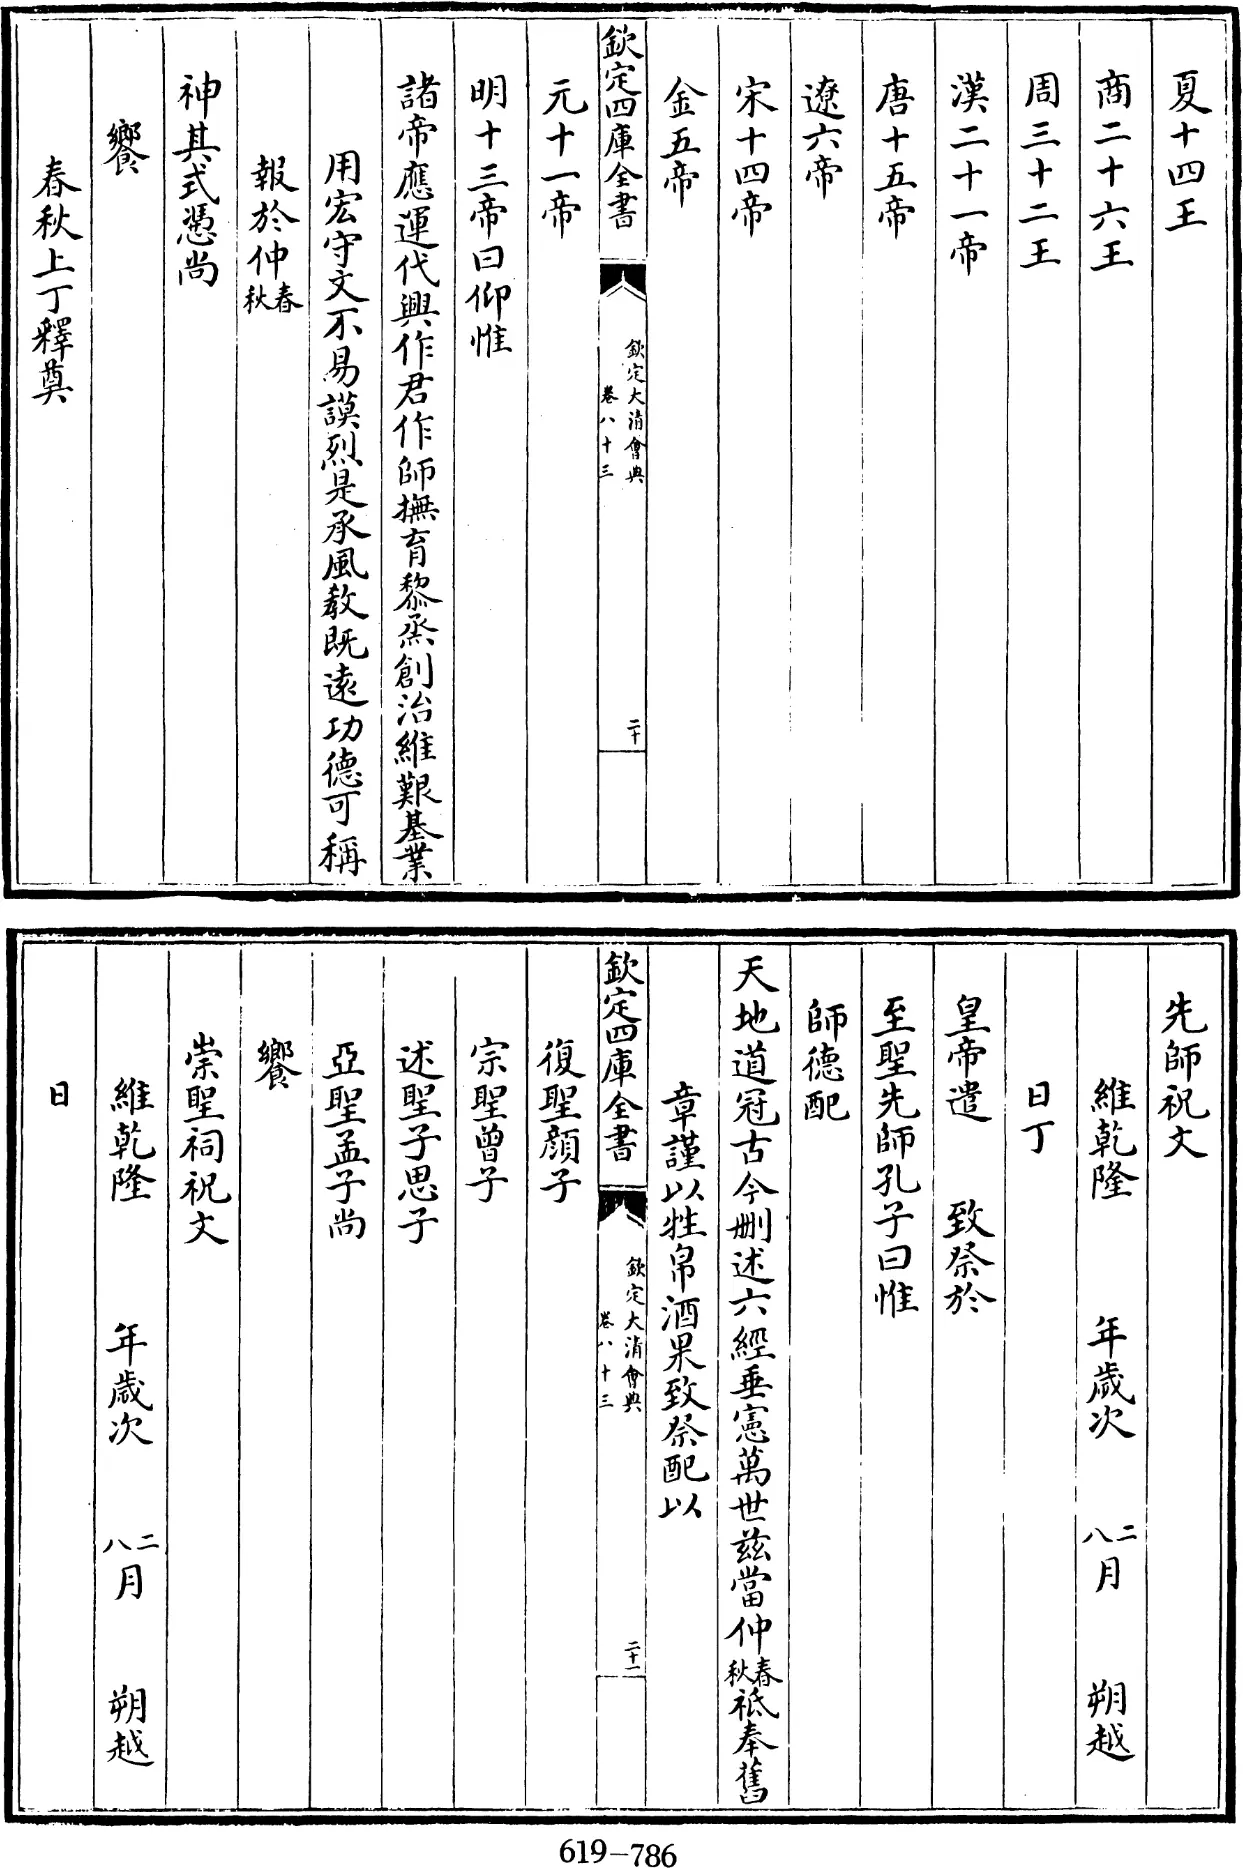 夏十四王
商二十六王
周三十二王
漢二十一帝
唐十五帝
遼六帝
宋十四帝
金五帝
欽定四庫全書
欽定大清會典
卷八十三
二十
元十一帝
明十三帝曰仰惟
諸帝應運代興作君作師撫育黎烝創治維艱基業
用宏守文不易謨烈是承風教既遠功德可稱
報於仲春秋
神其式憑尚
饗
春秋上丁釋奠
先師祝文
維乾隆 年歲次 二八月 朔越
日丁
皇帝遣 致祭於
至聖先師孔子曰惟
師德配
天地道冠古今刪述六經垂憲萬世茲當仲春秋祗奉舊
章謹以牲帛酒果致祭配以
欽定四庫全書
欽定大清會典
卷八十三
二十一
復聖顏子
宗聖曾子
述聖子思子
亞聖孟子尚
饗
崇聖祠祝文
維乾隆 年歲次 二八月 朔越
日
619-786